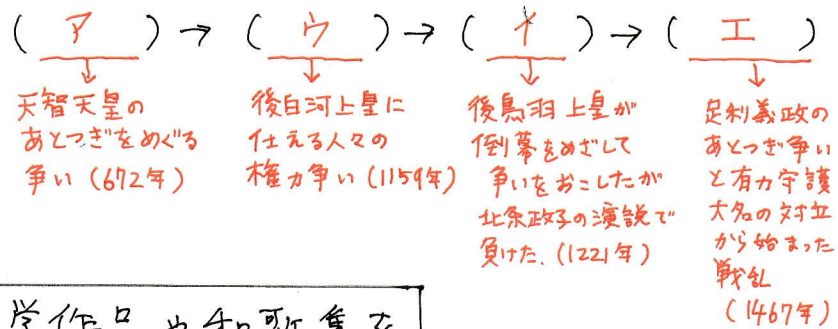 (ア)→(ウ)→(イ)→(エ)
天智天皇の
あとつぎをめぐる
争い(672年)
後白河上皇に
仕える人々の
権力争い(1159年)
後鳥羽上皇が
倒幕をめざして
争いをおこしたが
北条政子の演説で
負けた.(1221年)
足利義政の
あとつぎ争い
と有力守護
大名の対立
から始まった
戦乱
(1467年)
学作品や和歌集を